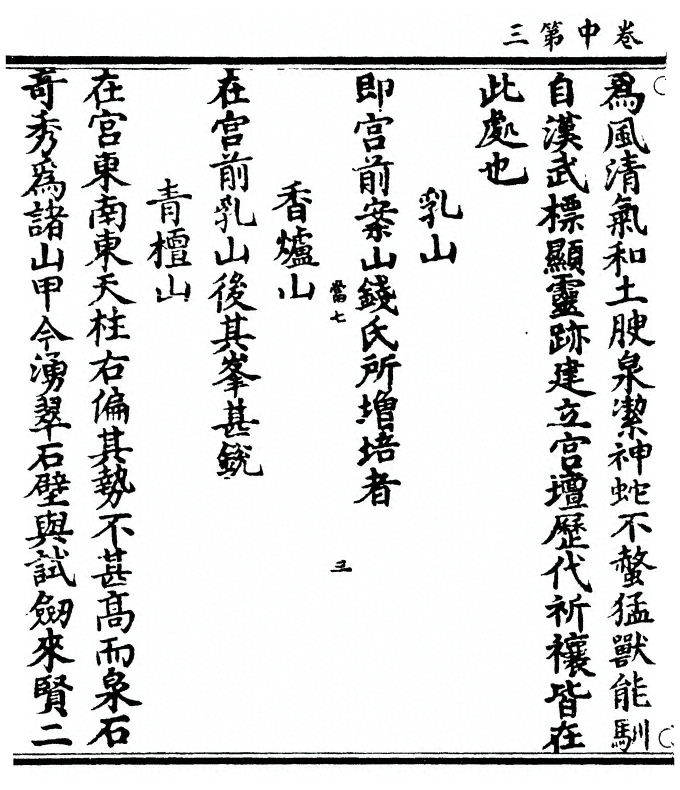 卷中第三
爲風清氣和土腴泉潔神蛇不螫猛獸能馴
自漢武標顯靈跡建立宫壇歷代祈禳皆在
此處也
乳山
即宫前案山錢氏所增培者
當七
三
香爐山
在宫前乳山後其峯甚銳
青檀山
在宫東南東天柱右偏其勢不甚高而泉石
奇秀爲諸山甲今湧翠石壁與試劒來賢二